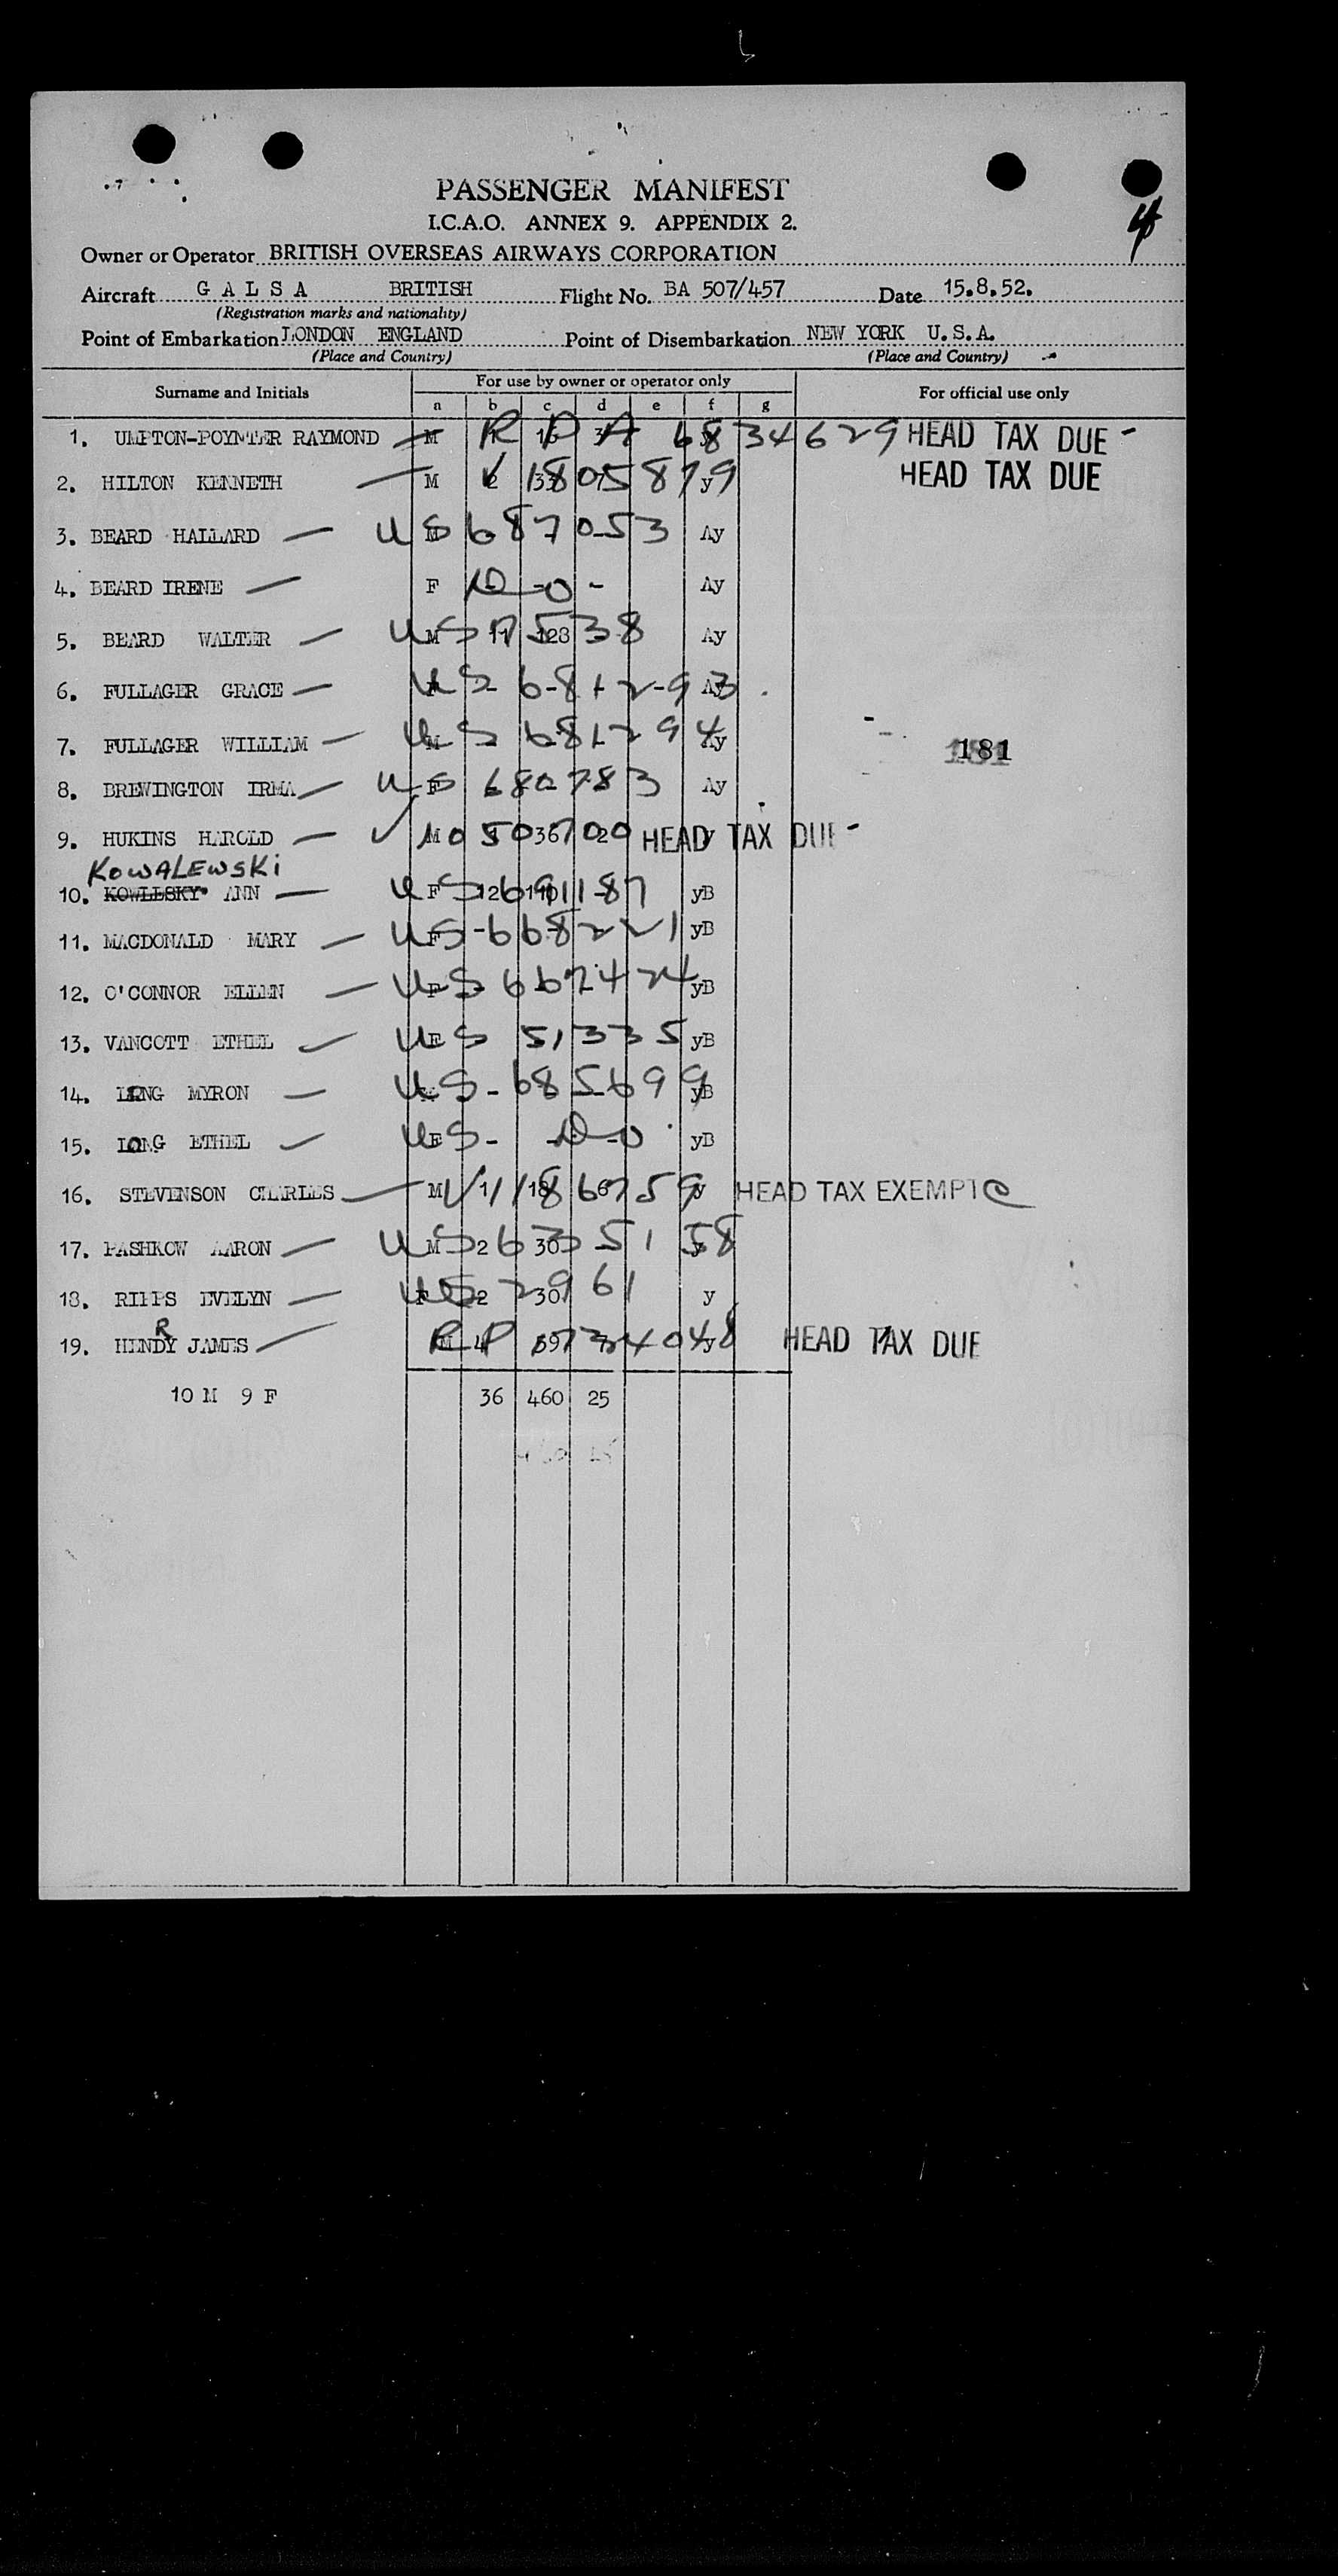 4
PASSENGER MANIFEST
I.C.A.O. ANNEX 9. APPENDIX 2.
Owner or Operator BRITISH OVERSEAS AIRWAYS CORPORATION
Aircraft G A L S A BRITISH Flight No. BA 507/457 Date 15.8.52.
(Registration marks and nationality)
Point of Embarkation LONDON ENGLAND Point of Disembarkation NEW YORK U.S.A.
(Place and Country) (Place and Country)
For use by owner or operator only
Surname and Initials For official use only
a b c d e f g
1. UMPTON-POYNTER RAYMOND M 6834629 HEAD TAX DUE -
2. HILTON KENNETH M 1805879 y HEAD TAX DUE
3. BEARD HALLARD US 687053 Ay
4. BEARD IRENE F Ay
5. BEARD WALTER M US 17538 Ay
6. FULLAGER GRACE US 681293 Ay
7. FULLAGER WILLIAM US 681294 Ay
181
8. BREWINGTON IRMA US 680783 Ay
9. HUKINS HAROLD M HEAD TAX DUE -
KOWALEWSKI
10. KOWLESKY ANN US F yB
11. MACDONALD MARY US F 668221 yB
12. O'CONNOR ELLEN US F 667424 yB
13. VANCOTT ETHEL US F 51335 yB
14. LONG MYRON US - 685699 yB
15. LONG ETHEL US F - yB
16. STEVENSON CHARLES M HEAD TAX EXEMPT
17. PASHKOW AARON US M 2 30
18. RIPPS EVELYN US F 2 30 2961 y
R
19. HENDY JAMES M 4 y HEAD TAX DUE
10 M 9 F 36 460 25